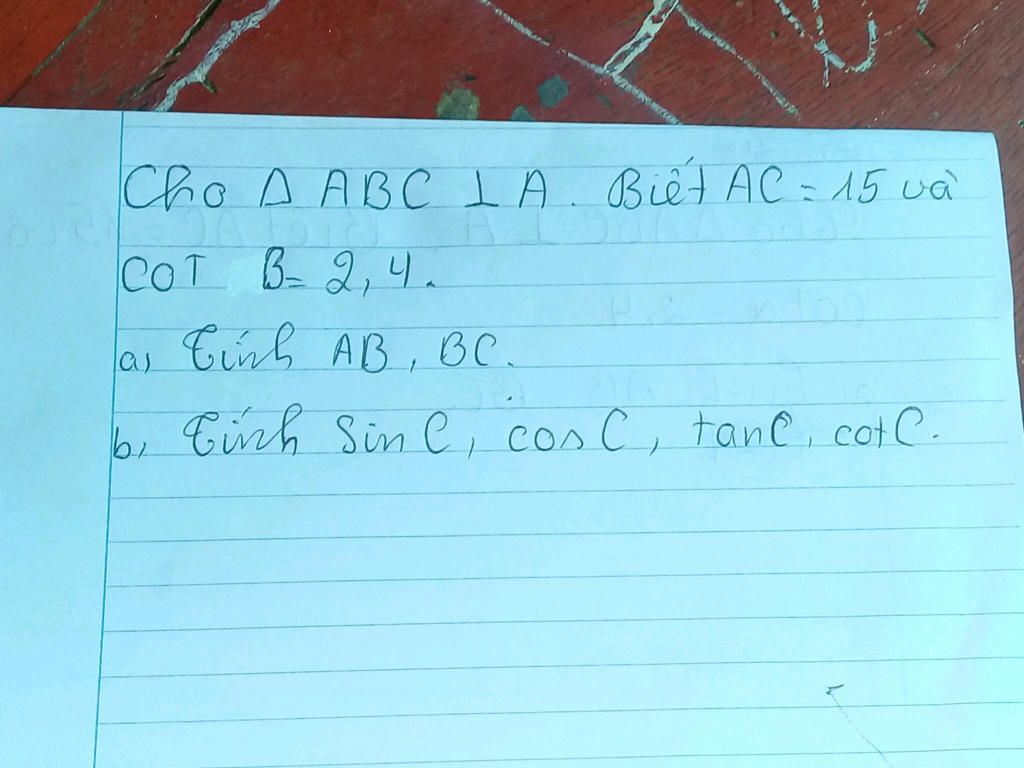 Cho Δ ABC ⊥ A. Biết AC = 15 và
COT B = 2,4.
a, Tính AB, BC.
b, Tính Sin C, cos C, tan C, cot C.